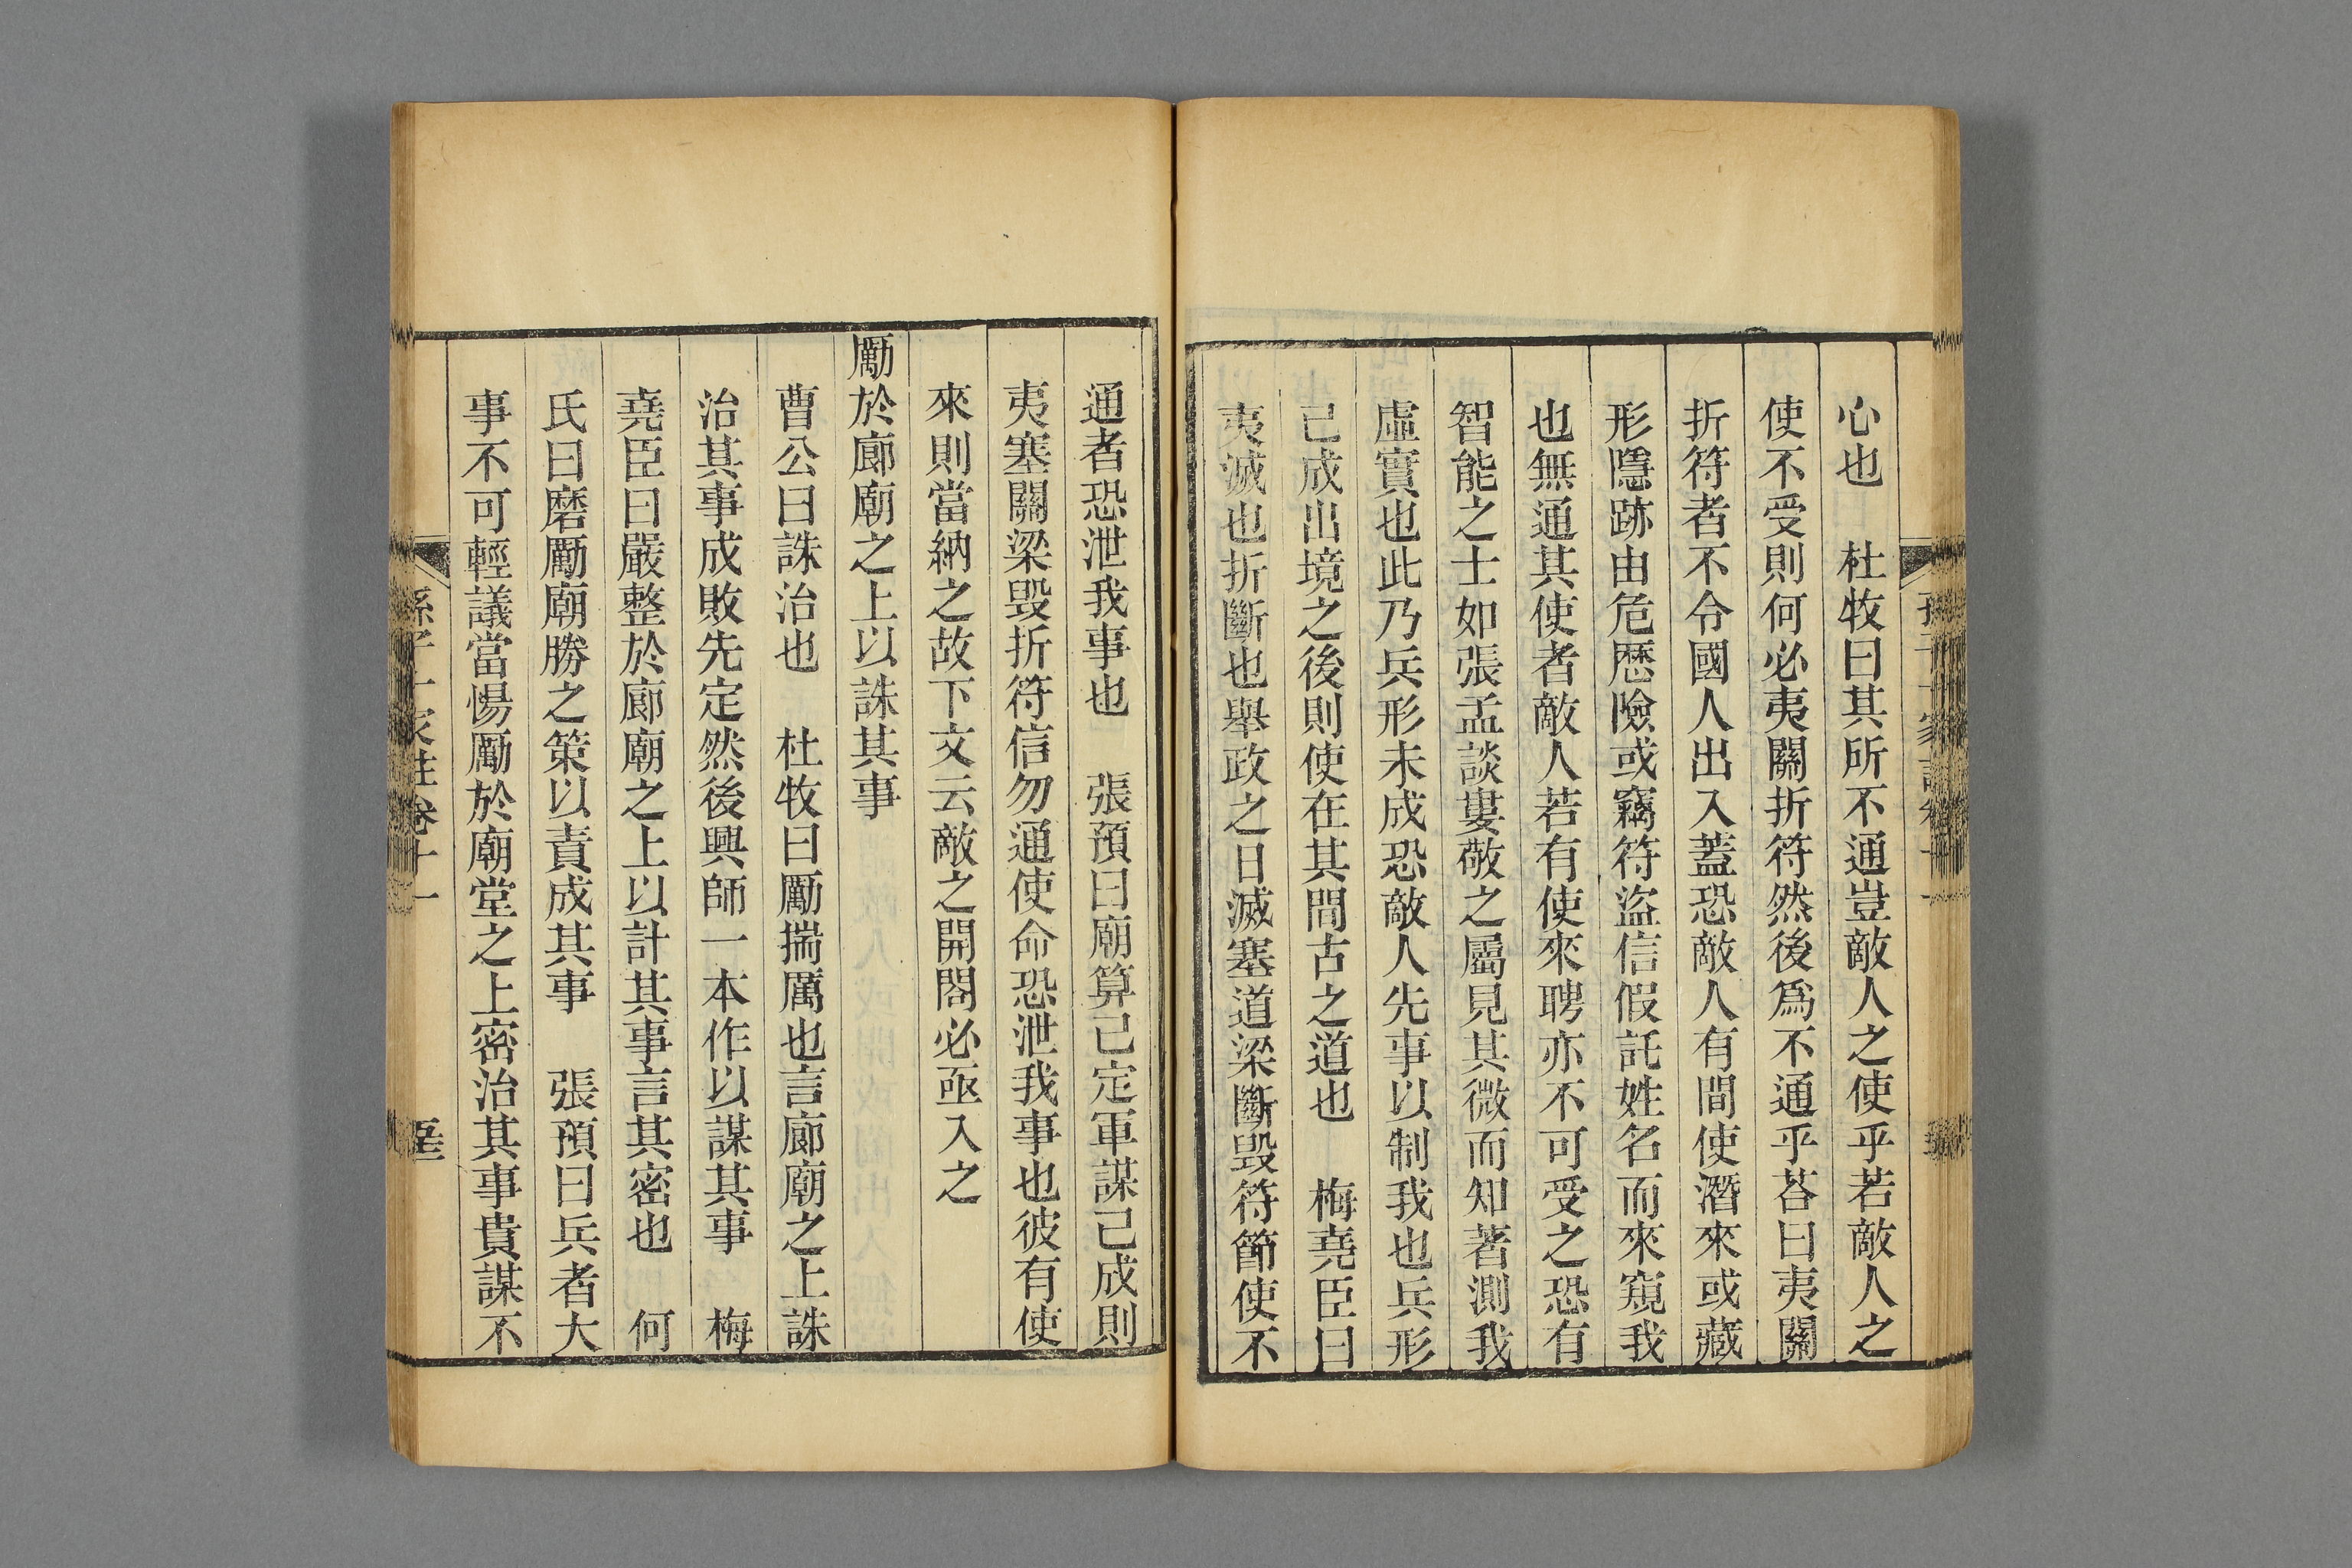 心也　杜牧曰其所不通豈敵人之使乎若敵人之
使不受則何必夷關折符然後爲不通乎荅曰夷關
折符者不令國人出入蓋恐敵人有間使潛來或藏
形隱跡由危歷險或竊符盜信假託姓名而來窺我
也無通其使者敵人若有使來聘亦不可受之恐有
智能之士如張孟談婁敬之屬見其微而知著測我
虛實也此乃兵形未成恐敵人先事以制我也兵形
已成出境之後則使在其間古之道也　梅堯臣曰
夷滅也折斷也舉政之日滅塞道梁斷毀符節使不
通者恐泄我事也　張預曰廟算已定軍謀已成則
夷塞關梁毀折符信勿通使命恐泄我事也彼有使
來則當納之故下文云敵之開闔必亟入之
勵於廊廟之上以誅其事
曹公曰誅治也　杜牧曰厲揣厲也言廊廟之上誅
治其事成敗先定然後興師一本作以謀其事　梅
堯臣曰嚴整於廊廟之上以計其事言其密也　何
氏曰磨勵廟勝之策以責成其事　張預曰兵者大
事不可輕議當惕勵於廟堂之上密治其事貴謀不
孫子十家註卷十一